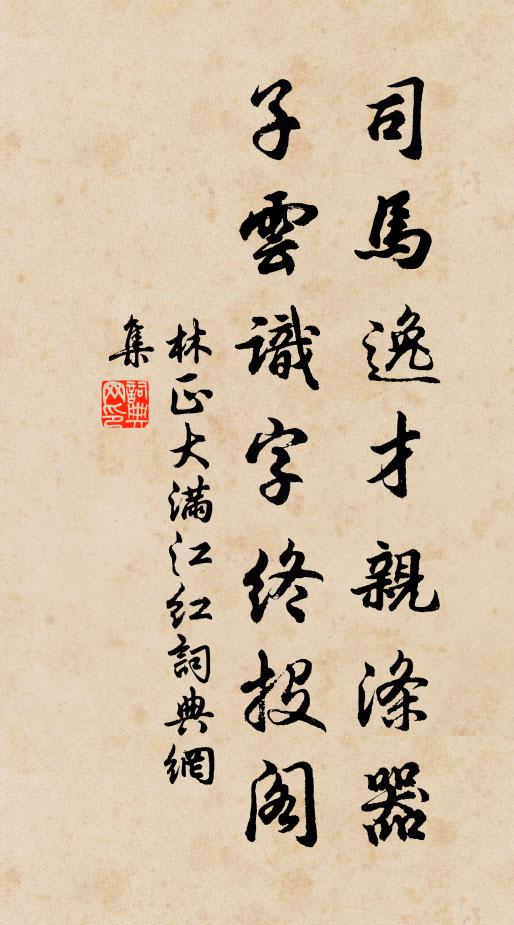 司馬逸才親滌器
子雲識字終投閣
林正大滿江紅詞典網
集
詞典网印